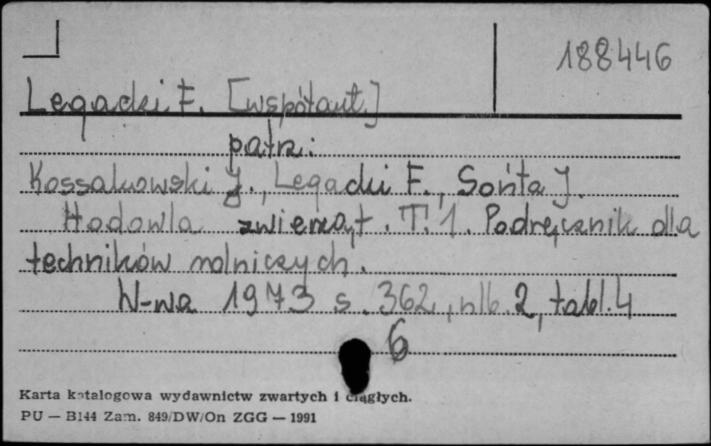 188446
Legacki F. [współaut.]
patrz:
Kossakowski J., Legacki F., Sońta J.
Hodowla zwierząt. T. 1. Podręcznik dla
techników rolniczych.
W-wa 1973 s. 362, nlb. 2, tabl. 4
6
Karta katalogowa wydawnictw zwartych i ciągłych.
PU — B144 Zam. 849/DW/On ZGG — 1991